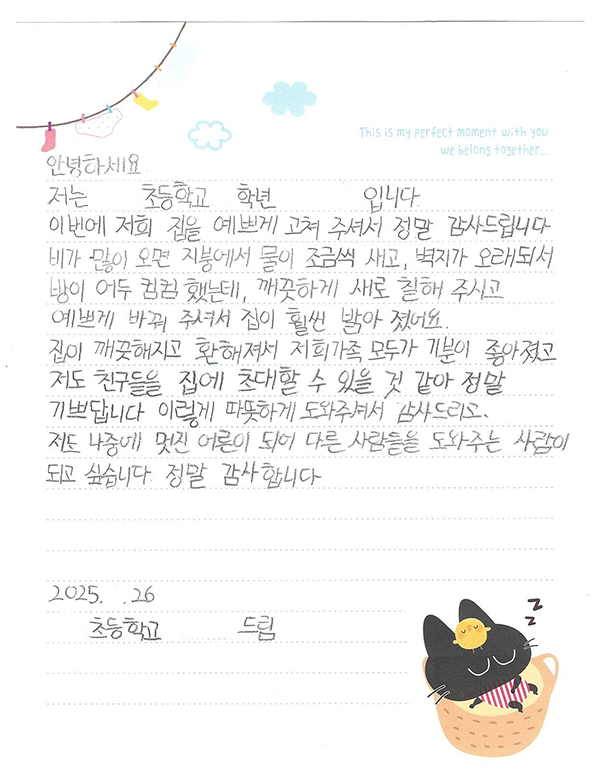 This is my perfect moment with you
we belong together...
안녕하세요
저는 초등학교 학년 입니다
이번에 저희 집을 예쁘게 고쳐 주셔서 정말 감사드립니다
비가 많이 오면 지붕에서 물이 조금씩 새고, 벽지가 오래되서
방이 어두 컴컴 했는데, 깨끗하게 새로 칠해 주시고
예쁘게 바꿔 주셔서 집이 훨씬 밝아 졌어요.
집이 깨끗해지고 환해져서 저희가족 모두가 기분이 좋아졌고
저도 친구들을 집에 초대할 수 있을 것 같아 정말
기쁘답니다 이렇게 따뜻하게 도와주셔서 감사드리고.
저도 나중에 멋진 어른이 되어 다른 사람들을 도와주는 사람이
되고 싶습니다. 정말 감사합니다
2025. .26
초등학교 드림
z z